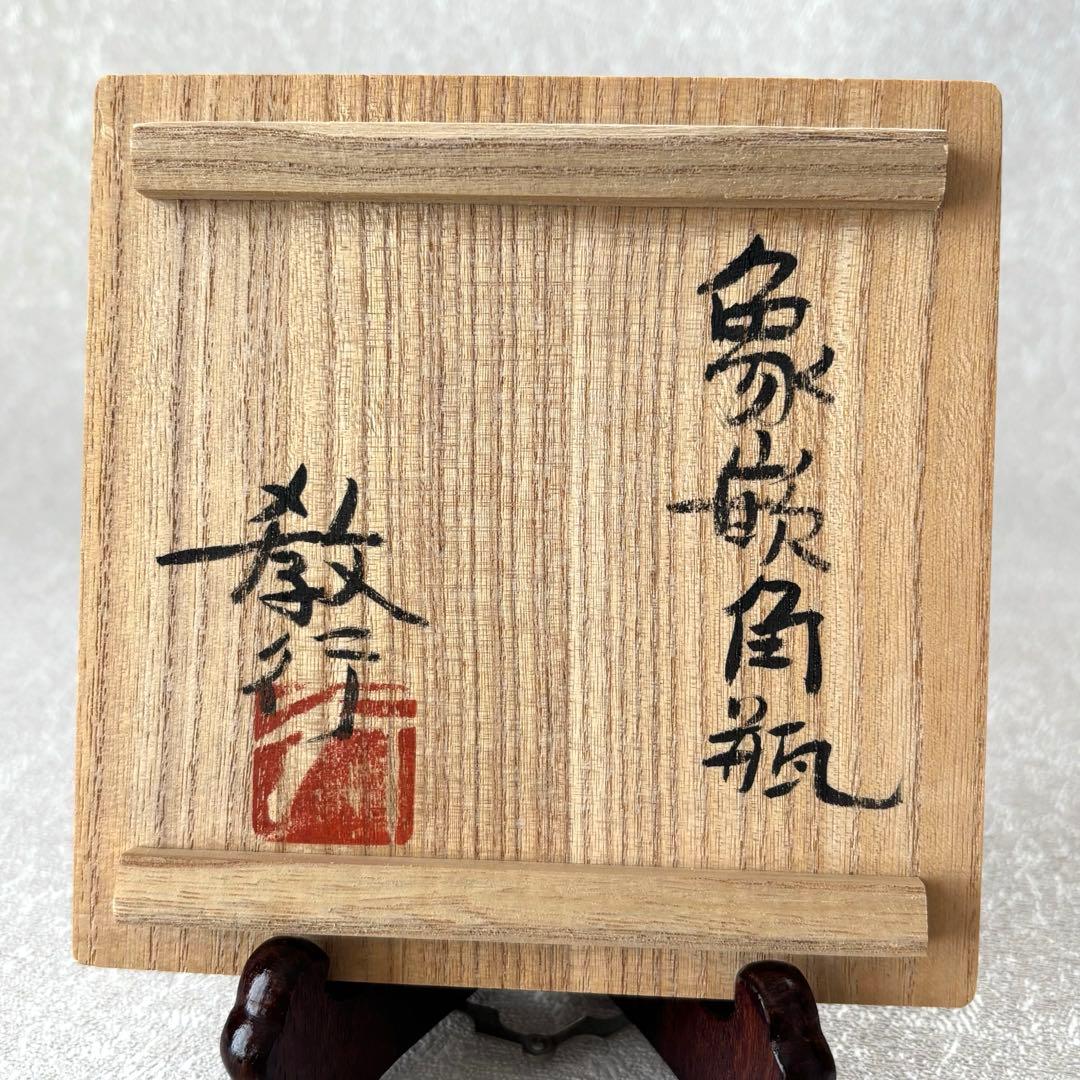 象嵌角瓶
教行